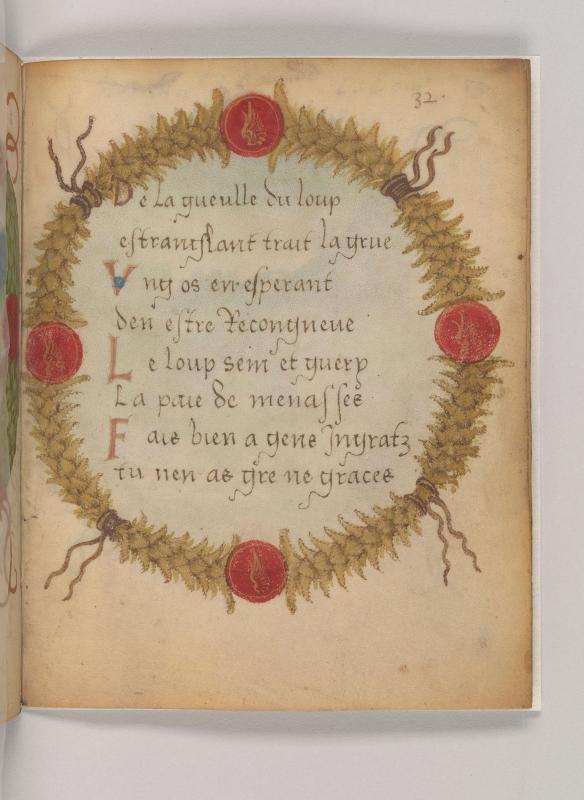 32.
De la gueulle du loup
estranglant trait la grue
Vng os en esperant
den estre Recongneue
Le loup sein et guery
La paie de menasses
Fais bien a gens Ingratz
tu nen as gre ne graces